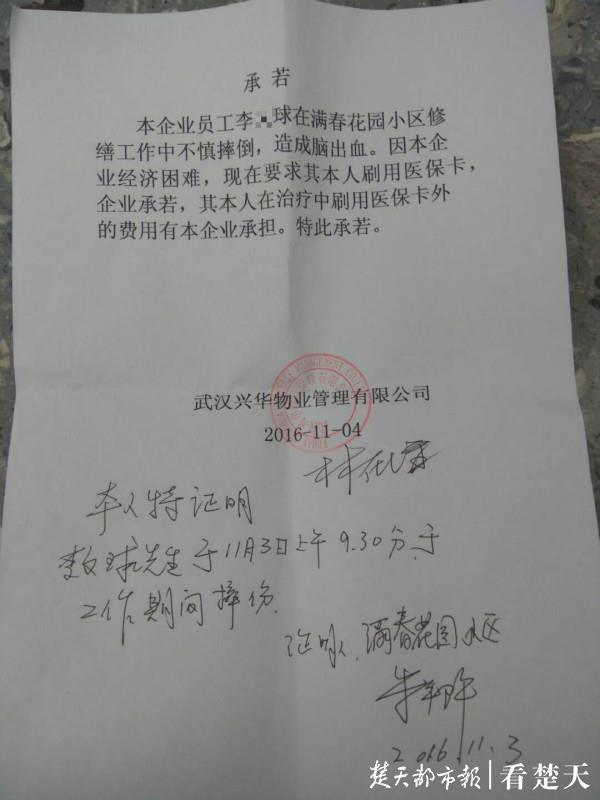 承若
本企业员工李 球在满春花园小区修
缮工作中不慎摔倒，造成脑出血。因本企
业经济困难，现在要求其本人刷用医保卡，
企业承若，其本人在治疗中刷用医保卡外
的费用有本企业承担。特此承若。
武汉兴华物业管理有限公司
2016-11-04
本人特证明
球先生于11月3日上午9.30分于
工作期间摔伤.
证明人. 满春花园小区
2016.11.3
楚天都市报|看楚天